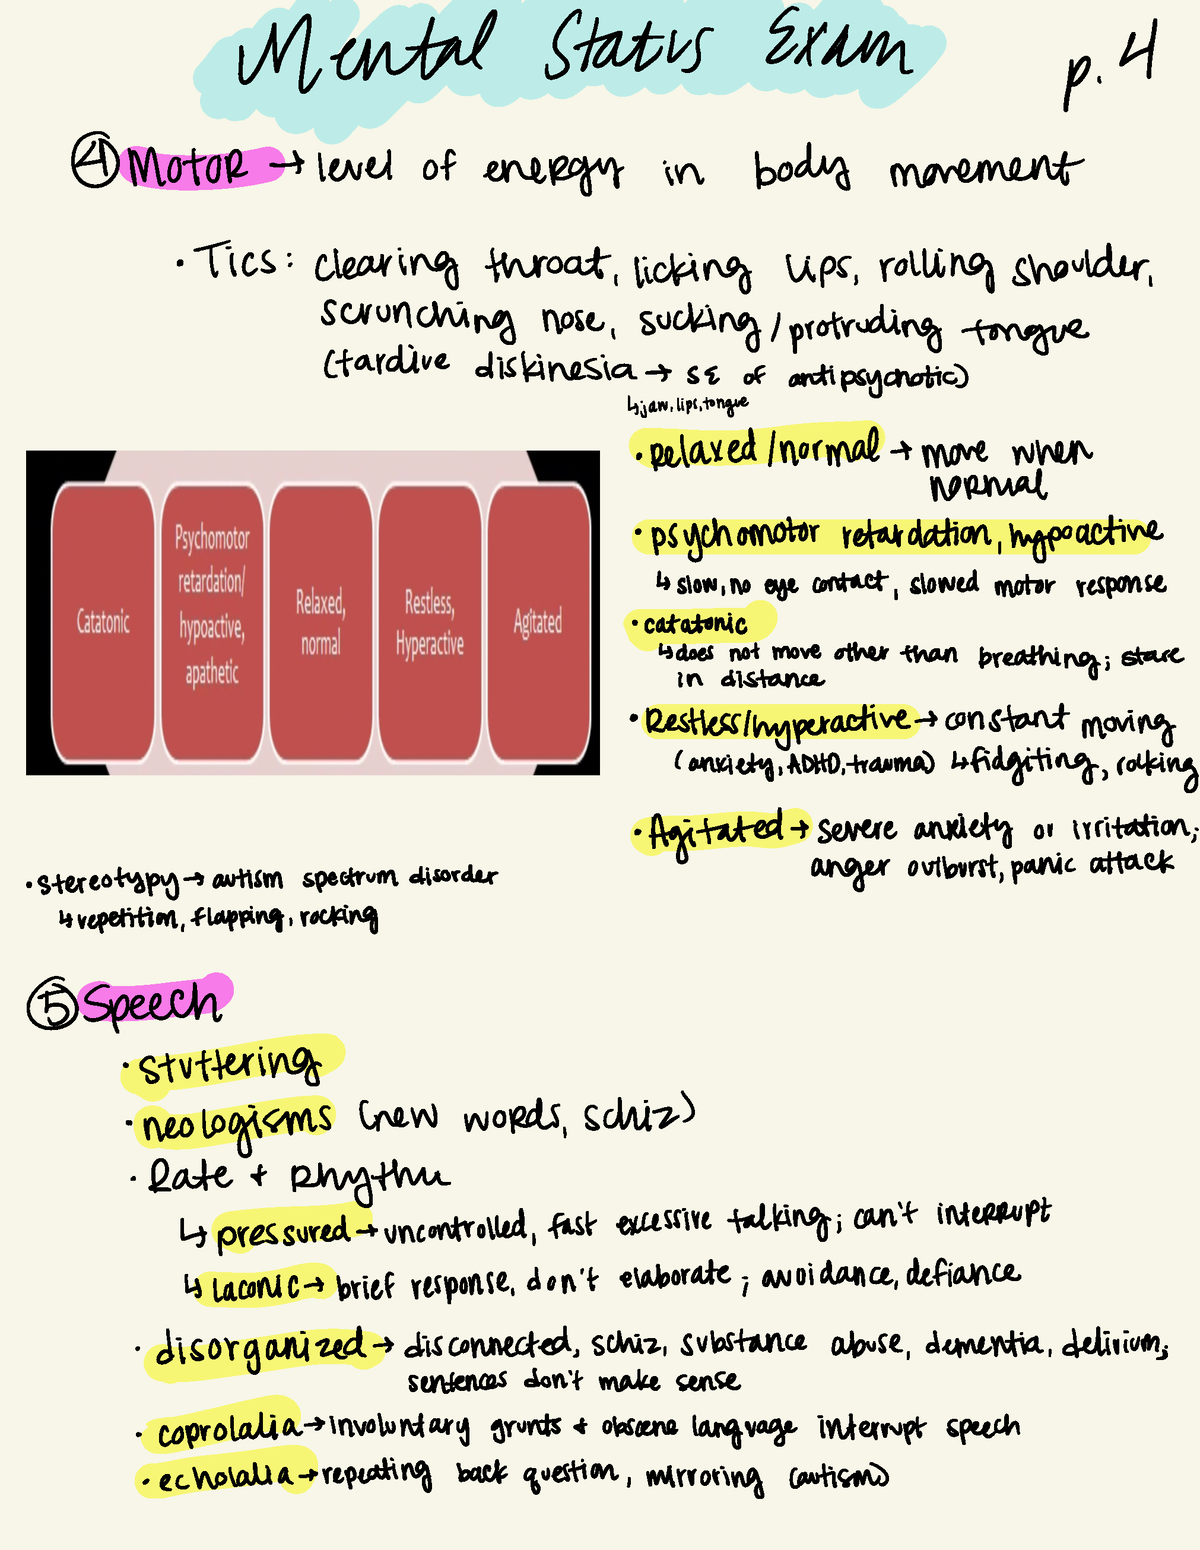 Mental Status Exam
p. 4
④ Motor → level of energy in body movement
• Tics: clearing throat, licking lips, rolling shoulder,
scrunching nose, sucking/protruding tongue
(tardive diskinesia → SE of antipsychotic)
↳ jaw, lips, tongue
• Relaxed/normal → move when
normal
• psychomotor retardation, hypoactive
↳ slow, no eye contact, slowed motor response
• catatonic
↳ does not move other than breathing; stare
in distance
• Restless/hyperactive → constant moving
(anxiety, ADHD, trauma) ↳ fidgiting, rolking
• Agitated → severe anxiety or irritation;
anger outburst, panic attack
Catatonic
Psychomotor
retardation/
hypoactive,
apathetic
Relaxed,
normal
Restless,
Hyperactive
Agitated
• stereotypy → autism spectrum disorder
↳ repetition, flapping, rocking
⑤ Speech
• stuttering
• neologisms (new words, schiz)
• Rate + Rhythm
↳ pressured → uncontrolled, fast excessive talking; can't interrupt
↳ laconic → brief response, don't elaborate; avoidance, defiance
• disorganized → disconnected, schiz, substance abuse, dementia, delirium;
sentences don't make sense
• coprolalia → involuntary grunts + obscene language interrupt speech
• echolalia → repeating back question, mirroring (autism)